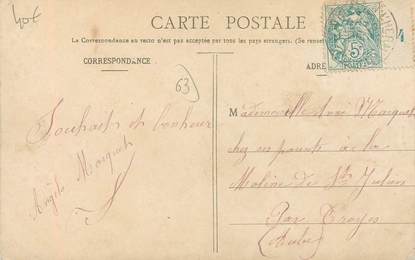 40€
CARTE POSTALE
La Correspondance au recto n'est pas acceptée par tous les pays étrangers. (Se rense
CORRESPONDANCE
ADRE
63
4
5
Souhaits de bonheur
Angèle Marquet
Mademoiselle Marquet
chez ses parents à la
Moline des Sts Julien
Par Troyes
(Aube)